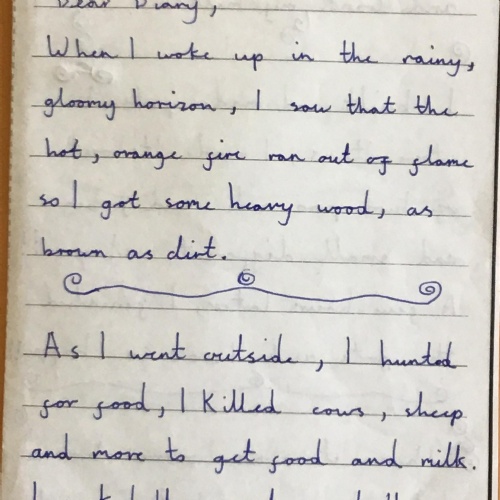 Dear Diary,
When I woke up in the rainy,
gloomy horizon, I saw that the
hot, orange fire ran out of flame
so I got some heavy wood, as
brown as dirt.
As I went outside, I hunted
for food, I Killed cows, sheep
and more to get food and milk.